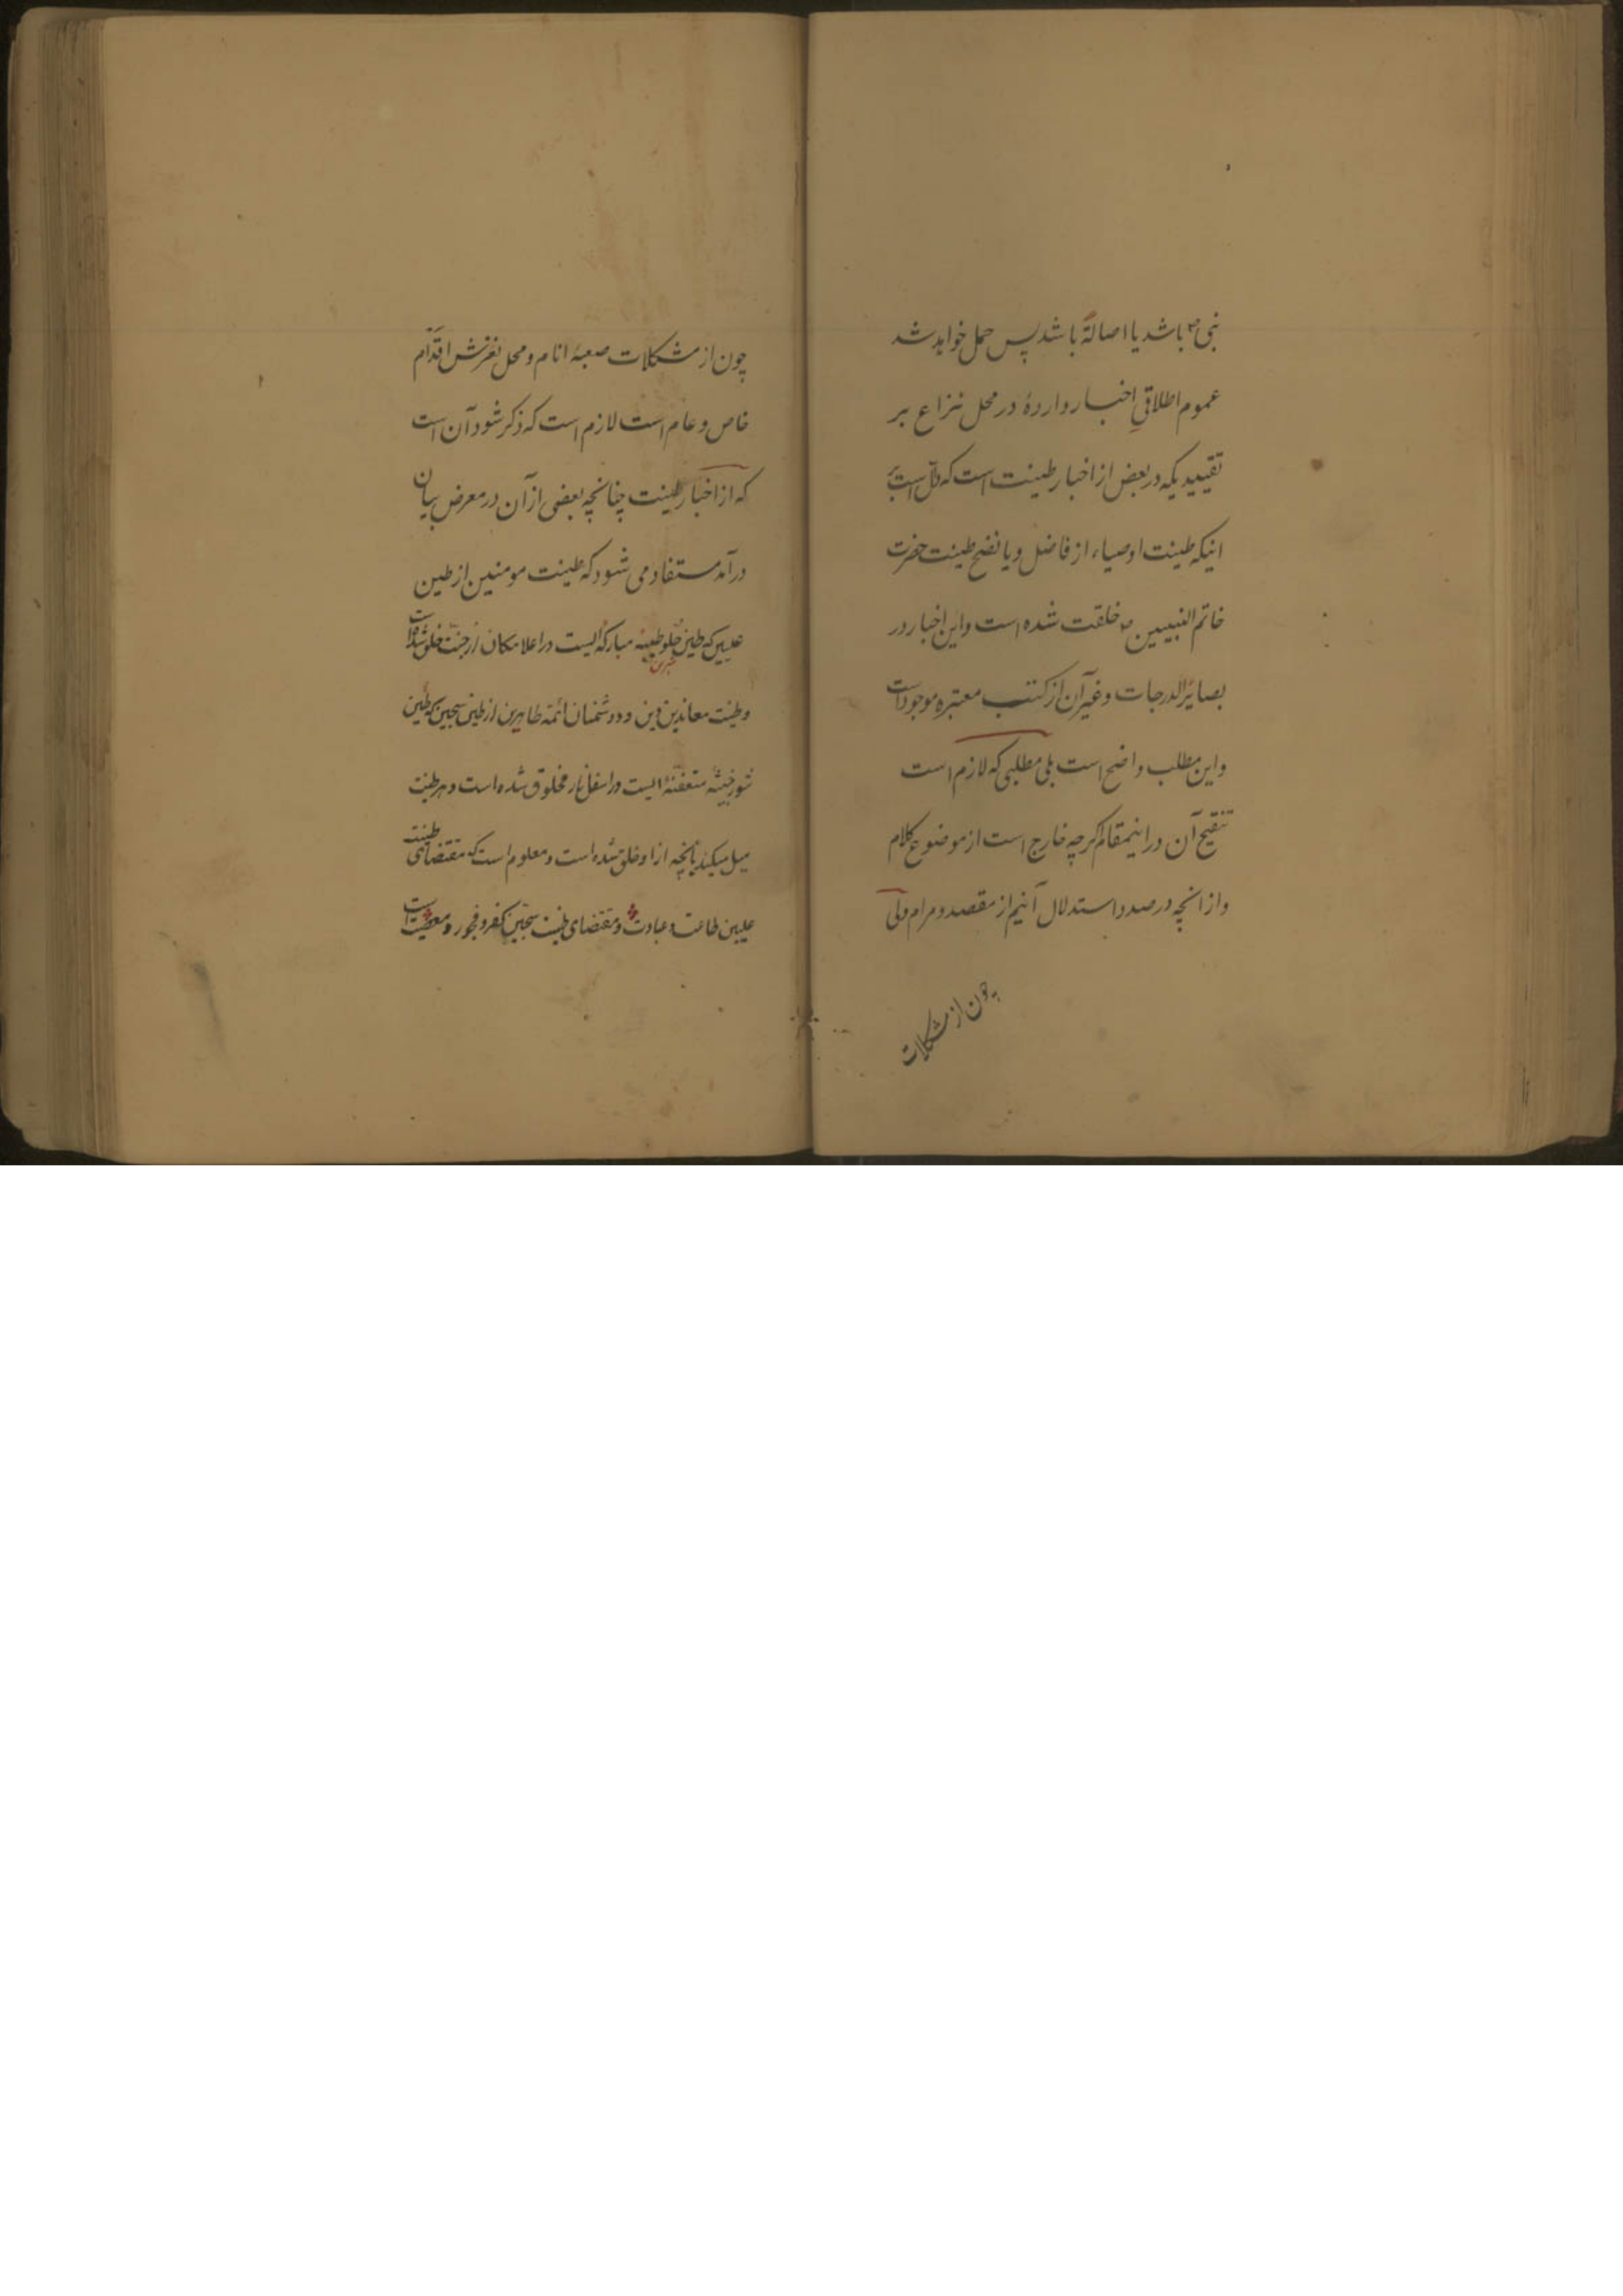 نبی ص باشد یا اصالةً باشد پس حمل خواهد شد
عموم اطلاقِ اخبار واردهٔ در محل نزاع بر
تقییدیکه در بعض از اخبار طینت است که دالّ است بر
اینکه طینت اوصیاء از فاضل و یا نضح طینت حضرت
خاتم النبیین ص خلقت شده است و این اخبار در
بصائر الدرجات و غیر آن از کتب معتبره موجود است
و این مطلب واضح است بلی مطلبی که لازم است
تنقیح آن در اینمقام اگرچه خارج است از موضوع کلام
و از آنچه در صدد استدلال آنیم از مقصد و مرام ولی
چون از مشکلات
چون از مشکلات صعبهٔ انام و محل لغزش اقدام
خاص و عام است لازم است که ذکر شود آن است
که از اخبار طینت چنانچه بعضی از آن در معرض بیان
درآمد مستفاد می شود که طینت مومنین از طین
علیین که طین حلو طیبه مبارکه ایست در اعلا مکان از جنّت خلق شده است
و طینت معاندین دین و دوشمنان ائمه طاهرین از طین سجین که طین
شور خبیثه متعفنهٔ ایست در اسفل نار مخلوق شده است و هر طینت
میل میکند بآنچه از او خلق شده است و معلوم است که مقتضای طینت
علیین طاعت و عبادت و مقتضای طینت سجّین کفر و فجور و معصیت است